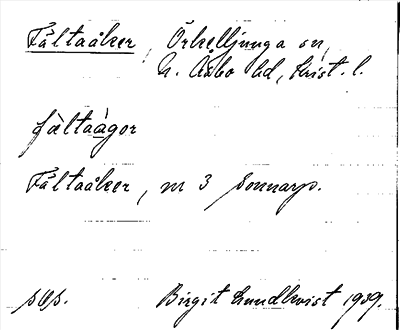 Fältaåker, Örkelljunga sn,
N. Åsbo hd, Krist. l.
fàltaàgor
Fältaåker, m 3 Sonnarp.
Birgit Lundkvist 1939.